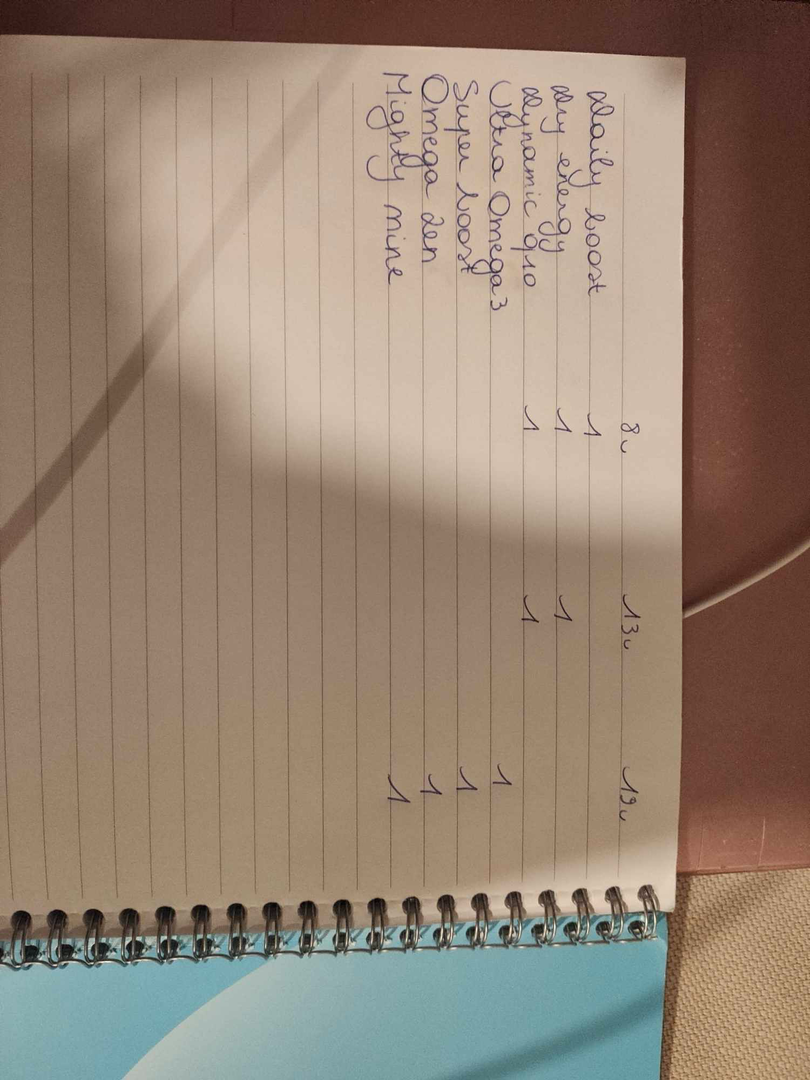 8u 13u 19u
Daily boost 1
My energy 1 1
Dynamic q10 1 1
Ultra Omega 3 1
Super boost 1
Omega zen 1
Mighty mine 1